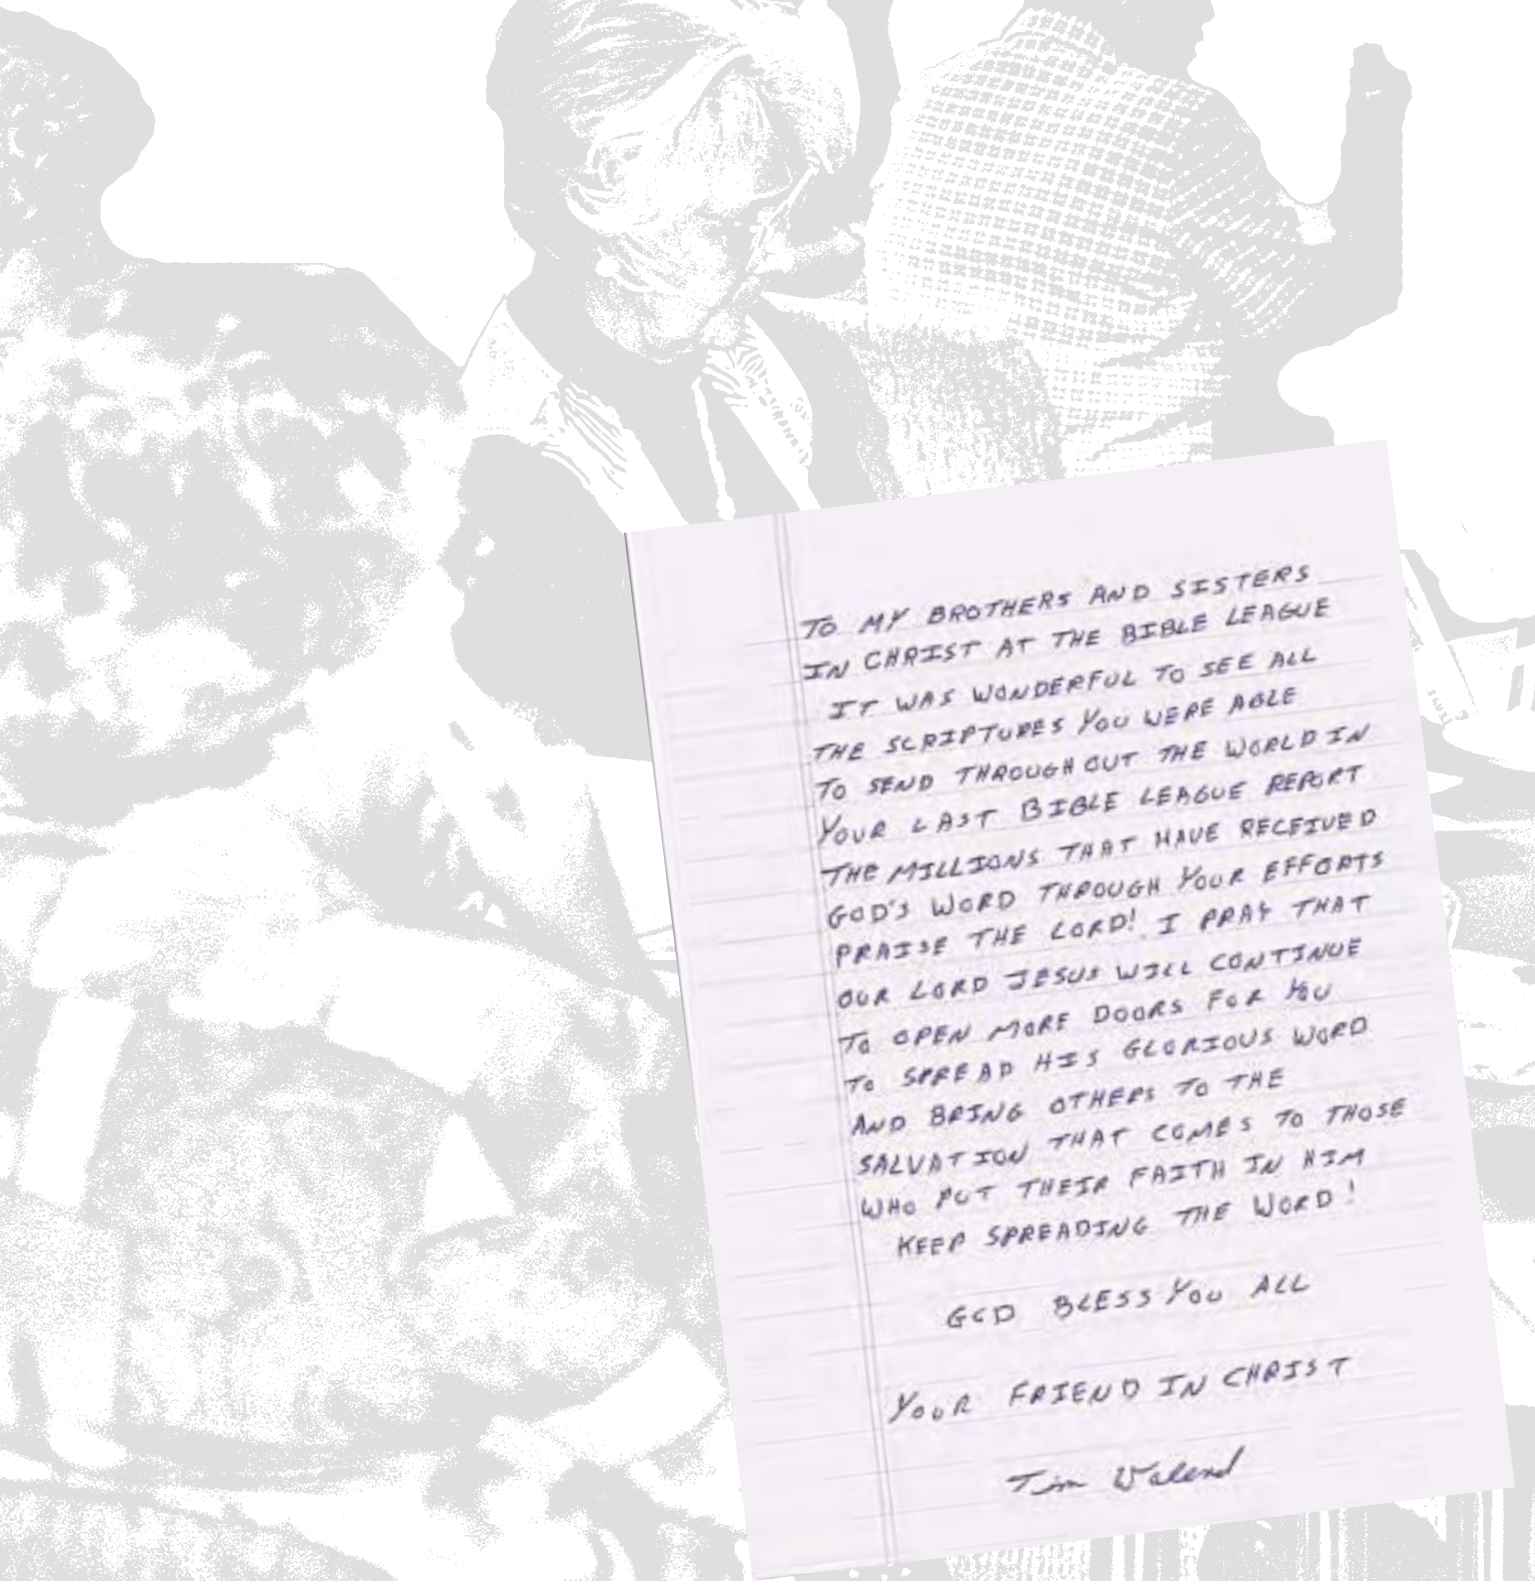 TO MY BROTHERS AND SISTERS
IN CHRIST AT THE BIBLE LEAGUE
IT WAS WONDERFUL TO SEE ALL
THE SCRIPTURES YOU WERE ABLE
TO SEND THROUGHOUT THE WORLD IN
YOUR LAST BIBLE LEAGUE REPORT
THE MILLIONS THAT HAVE RECEIVED
GOD'S WORD THROUGH YOUR EFFORTS
PRAISE THE LORD! I PRAY THAT
OUR LORD JESUS WILL CONTINUE
TO OPEN MORE DOORS FOR YOU
TO SPREAD HIS GLORIOUS WORD
AND BRING OTHERS TO THE
SALVATION THAT COMES TO THOSE
WHO PUT THEIR FAITH IN HIM
KEEP SPREADING THE WORD!
GOD BLESS YOU ALL
YOUR FRIEND IN CHRIST
Tim